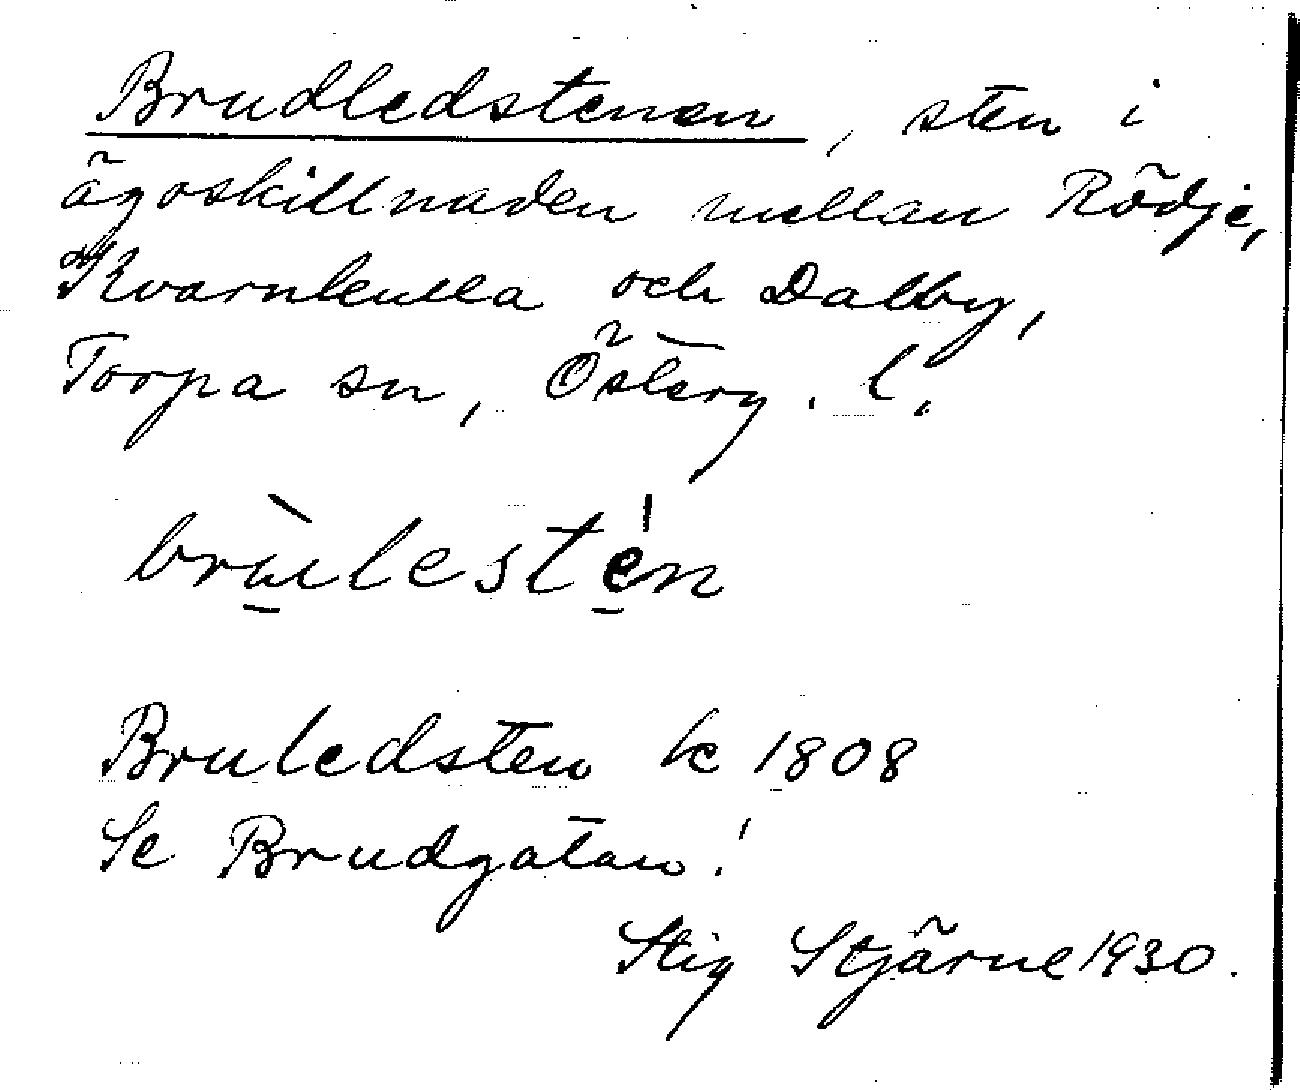 Brudledstenen, sten i
ägoskillnaden mellan Rödje,
Kvarnkulla och Dalby,
Torpa sn, Österg. l.
brùlesté̩n
Bruledsten k 1808
Se Brudgatan!
Stig Stjärne 1930.